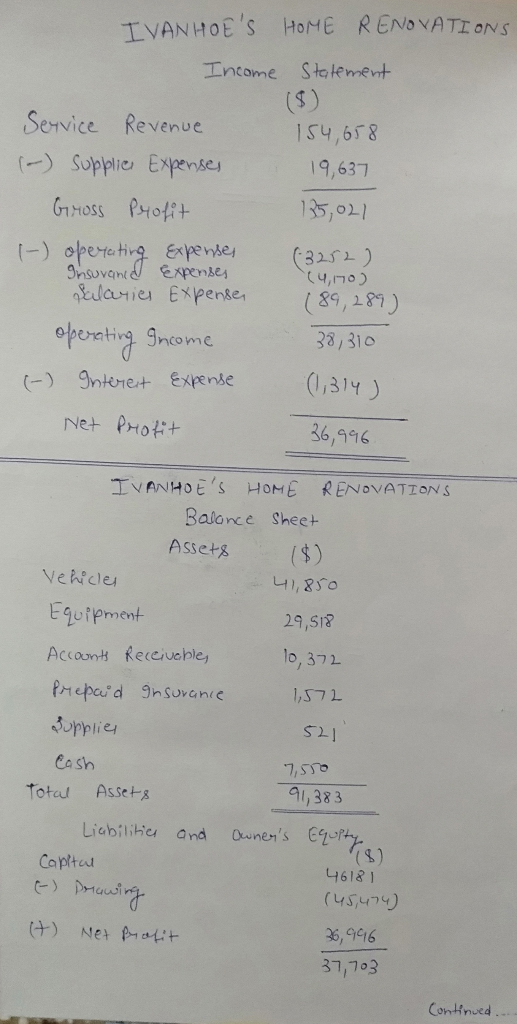 IVANHOE'S HOME RENOVATIONS
Income Statement
($)
Service Revenue 154,658
(-) Supplies Expenses 19,637
Gross Profit 135,021
(-) Operating Expenses (3252)
Insurance Expenses (4,170)
Salaries Expenses (89,289)
Operating Income 38,310
(-) Interest Expense (1,314)
Net Profit 36,996
IVANHOE'S HOME RENOVATIONS
Balance Sheet
Assets ($)
Vehicles 41,850
Equipment 29,518
Accounts Receivables 10,372
Prepaid Insurance 1,572
Supplies 521
Cash 7,550
Total Assets 91,383
Liabilities and Owner's Equity
($)
Capital 46181
(-) Drawing (45,474)
(+) Net Profit 36,996
37,703
Continued....